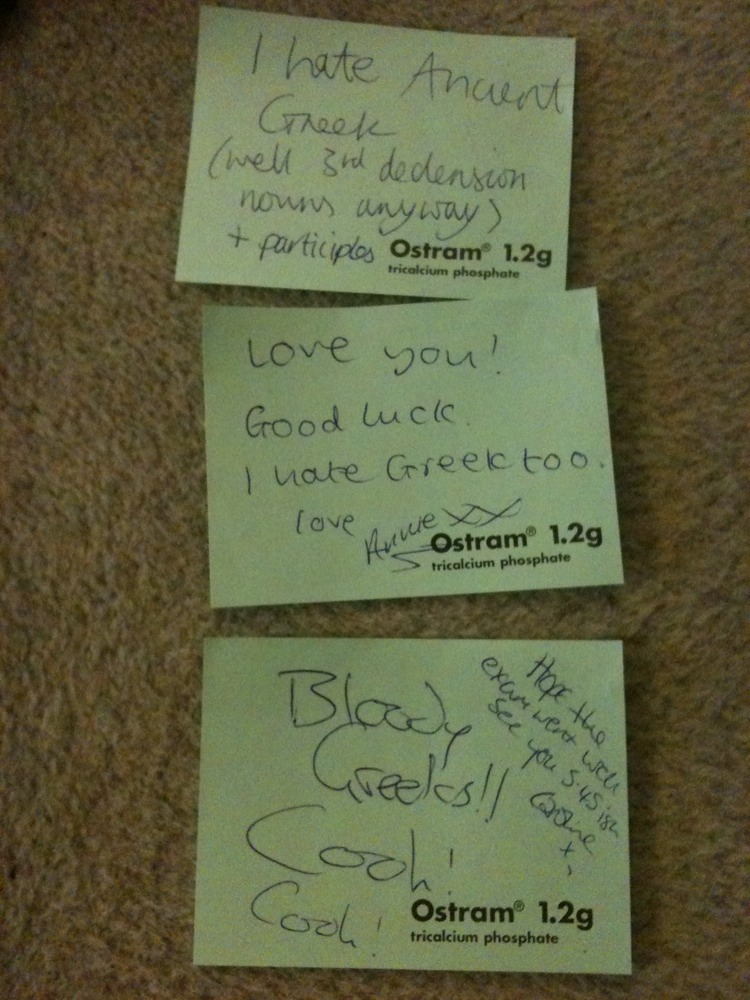 I hate Ancient
Greek
(well 3rd declension
nouns anyway)
+ participles
Ostram® 1.2g
tricalcium phosphate
Love you!
Good luck.
I hate Greek too.
love Annie XX
Ostram® 1.2g
tricalcium phosphate
Bloody
Greeks!!
Cooh!
Cooh!
Hope the
exam went well
see you 5.45 ish
x
Ostram® 1.2g
tricalcium phosphate